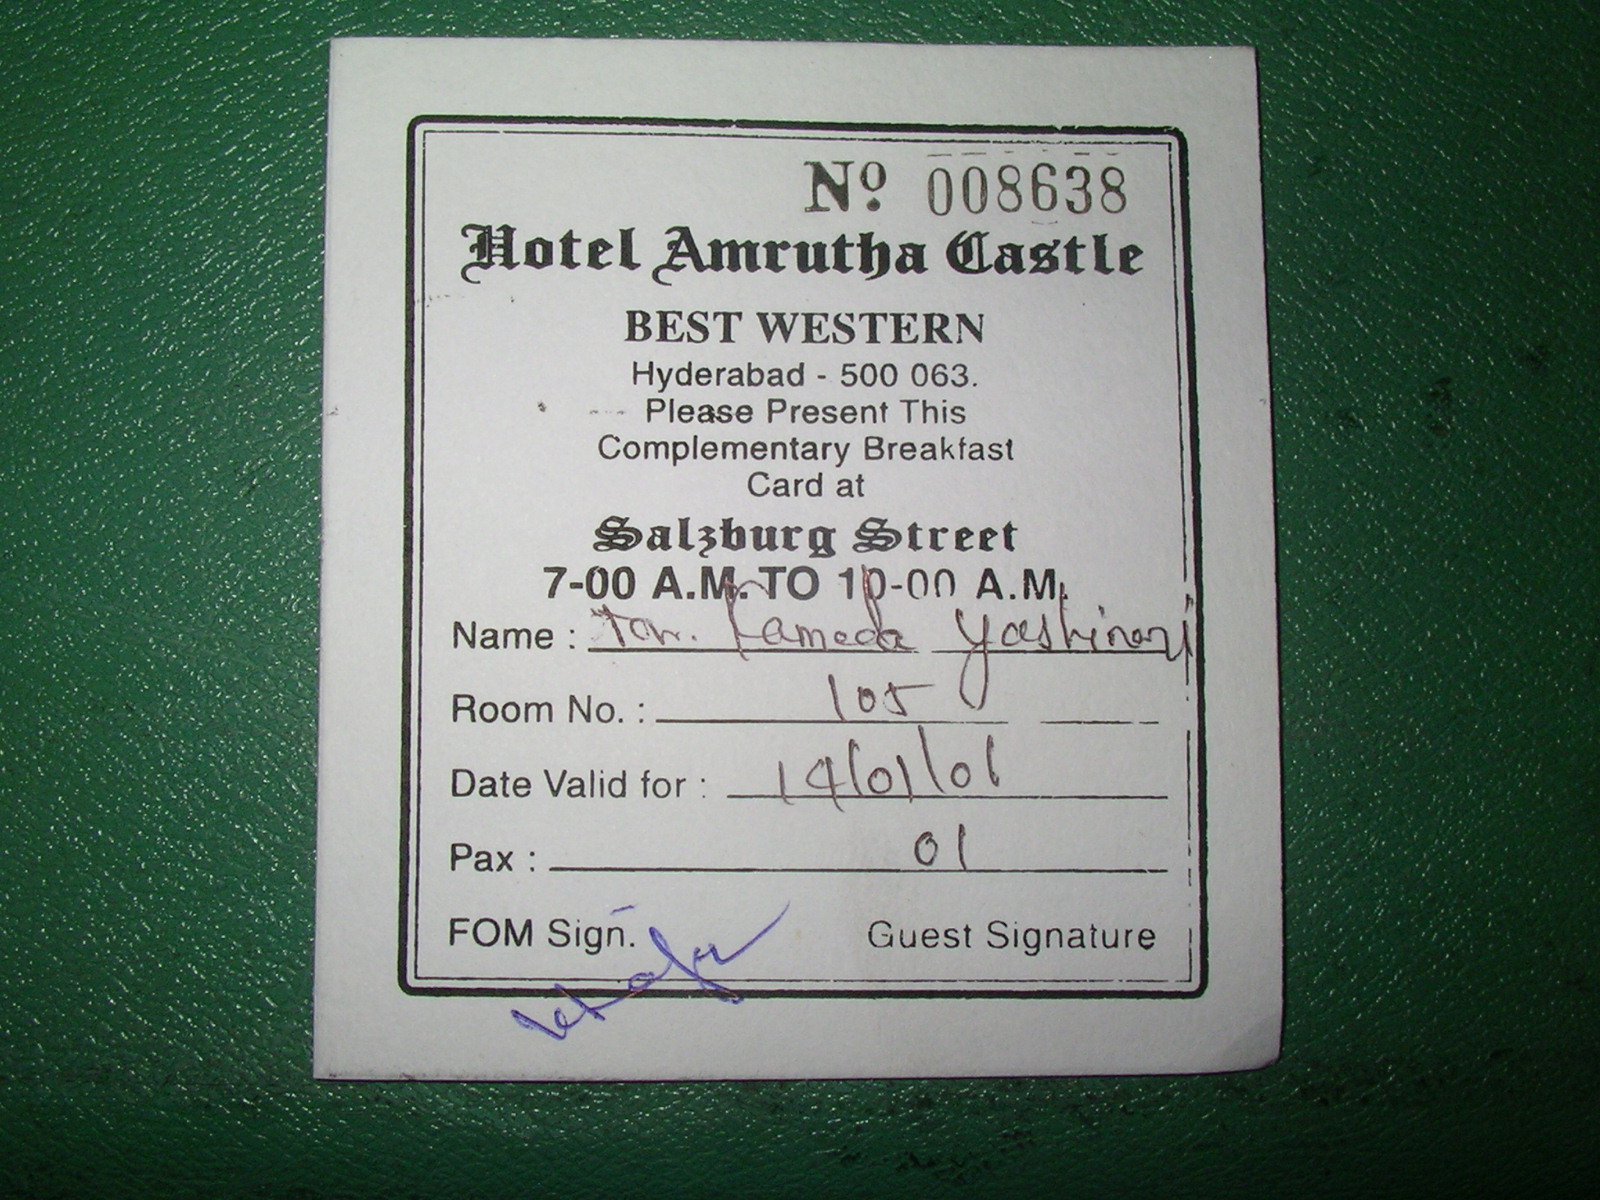 Nº 008638
Hotel Amrutha Castle
BEST WESTERN
Hyderabad - 500 063.
Please Present This
Complementary Breakfast
Card at
Salzburg Street
7-00 A.M. TO 10-00 A.M.
Name : Kameda Yoshinori
Room No. : 105
Date Valid for : 14/01/01
Pax : 01
FOM Sign. Guest Signature